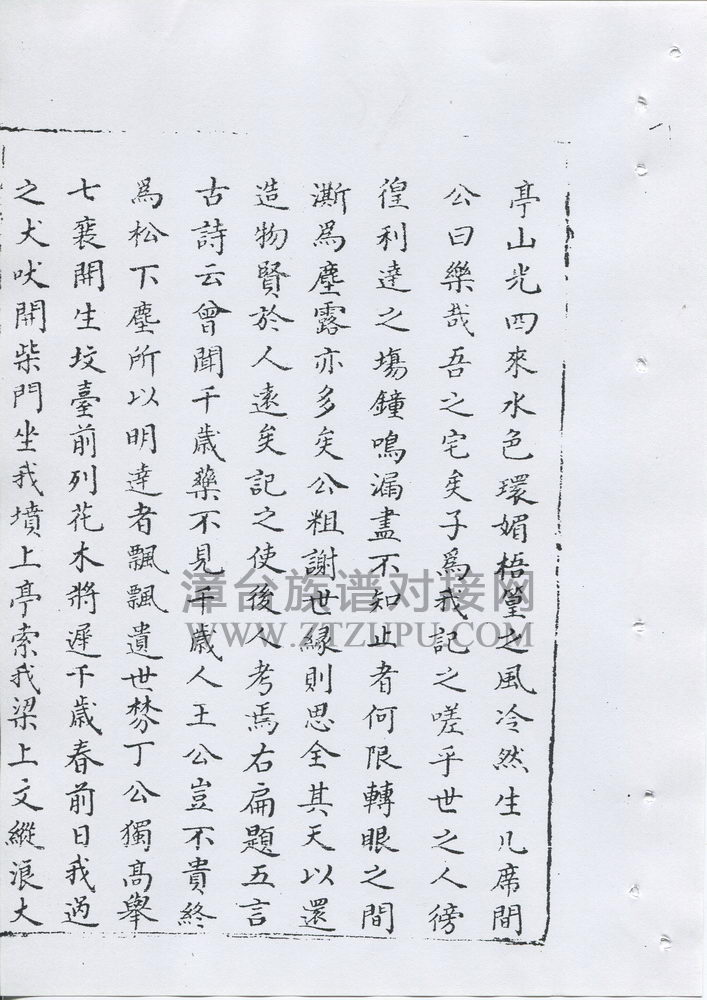 亭山光四來水色環媚梧篁之風冷然生几席間
公曰樂哉吾之宅矣子爲我記之嗟乎世之人徬
徨利達之塲鐘鳴漏盡不知止者何限轉眼之間
澌爲塵露亦多矣公粗謝世縁則思全其天以還
造物賢於人遠矣記之使後人考焉右扁題五言
古詩云曾聞千歲藥不見千歲人王公豈不貴終
爲松下塵所以明達者飄飄遺世棼丁公獨高舉
七袠開生坟臺前列花木將遲千歲春前日我過
之犬吠開柴門坐我墳上亭索我梁上文縱浪大
漳台族谱对接网
WWW.ZTZUPU.COM